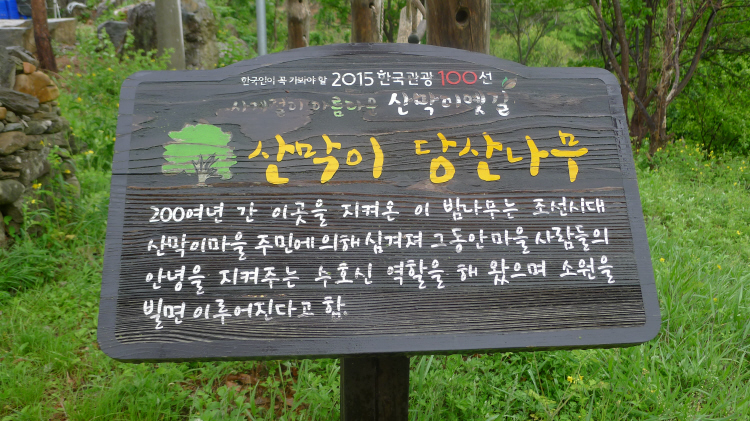 한국인이 꼭 가봐야 할 2015 한국관광 100선
사계절이 아름다운 산막이옛길
산막이 당산나무
200여년 간 이곳을 지켜온 이 밤나무는 조선시대
산막이마을 주민에 의해 심겨져 그동안 마을 사람들의
안녕을 지켜주는 수호신 역할을 해 왔으며 소원을
빌면 이루어진다고 함.